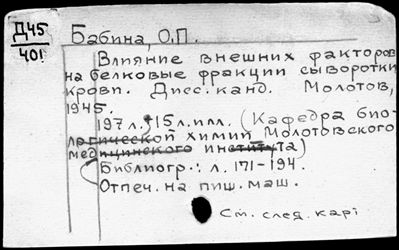 Д45
401
Бабина, О.П.
Влияние внешних факторов
на белковые фракции сыворотки
крови. Дисс. канд. Молотов,
1945.
197 л., 15 л. илл. (Кафедра био-
логической химии Молотовского
медицинского института)
Библиогр.: л. 171-194.
Отпеч. на пиш. маш.
См. след. карт